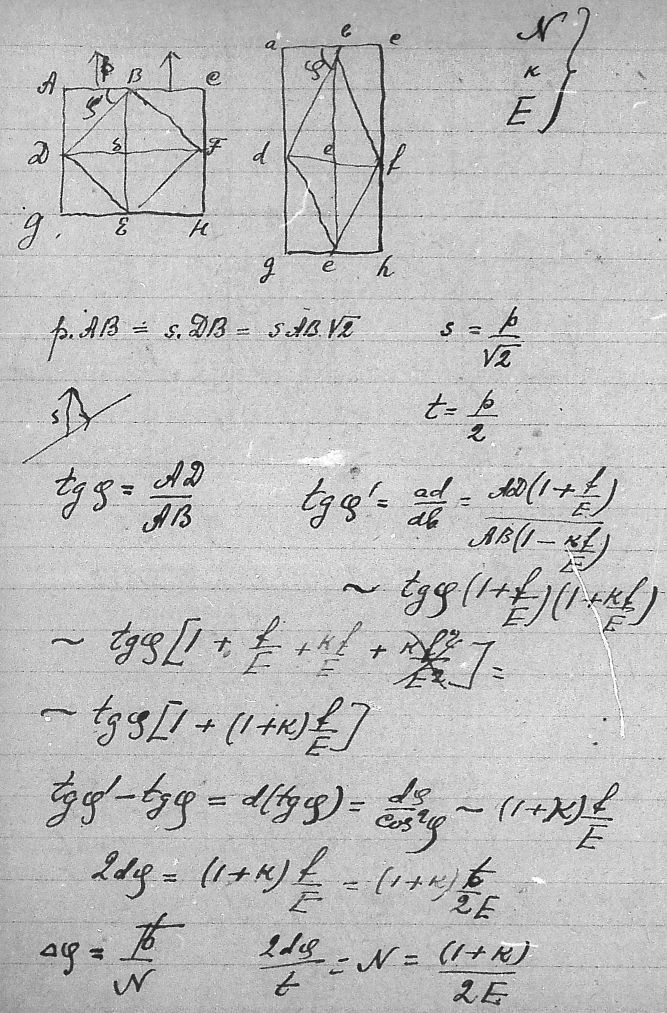 A B C
φ
D S F
g E H
a b c
φ
d e f
g e h
N
κ
E
p.AB = s.DB = sAB√2 s = p/√2
s t = p/2
tgφ = AD/AB tgφ' = ad/db = AD(1+f/E)/AB(1-κf/E)
~ tgφ(1+f/E)(1+κf/E)
~ tgφ[1 + f/E + κf/E + κf²/E²] =
~ tgφ[1 + (1+κ)f/E]
tgφ' - tgφ = d(tgφ) = dφ/cos²φ ~ (1+κ)f/E
2dφ = (1+κ)f/E = (1+κ)t/2E
Δφ = /N 2dφ/t = N = (1+κ)/2E